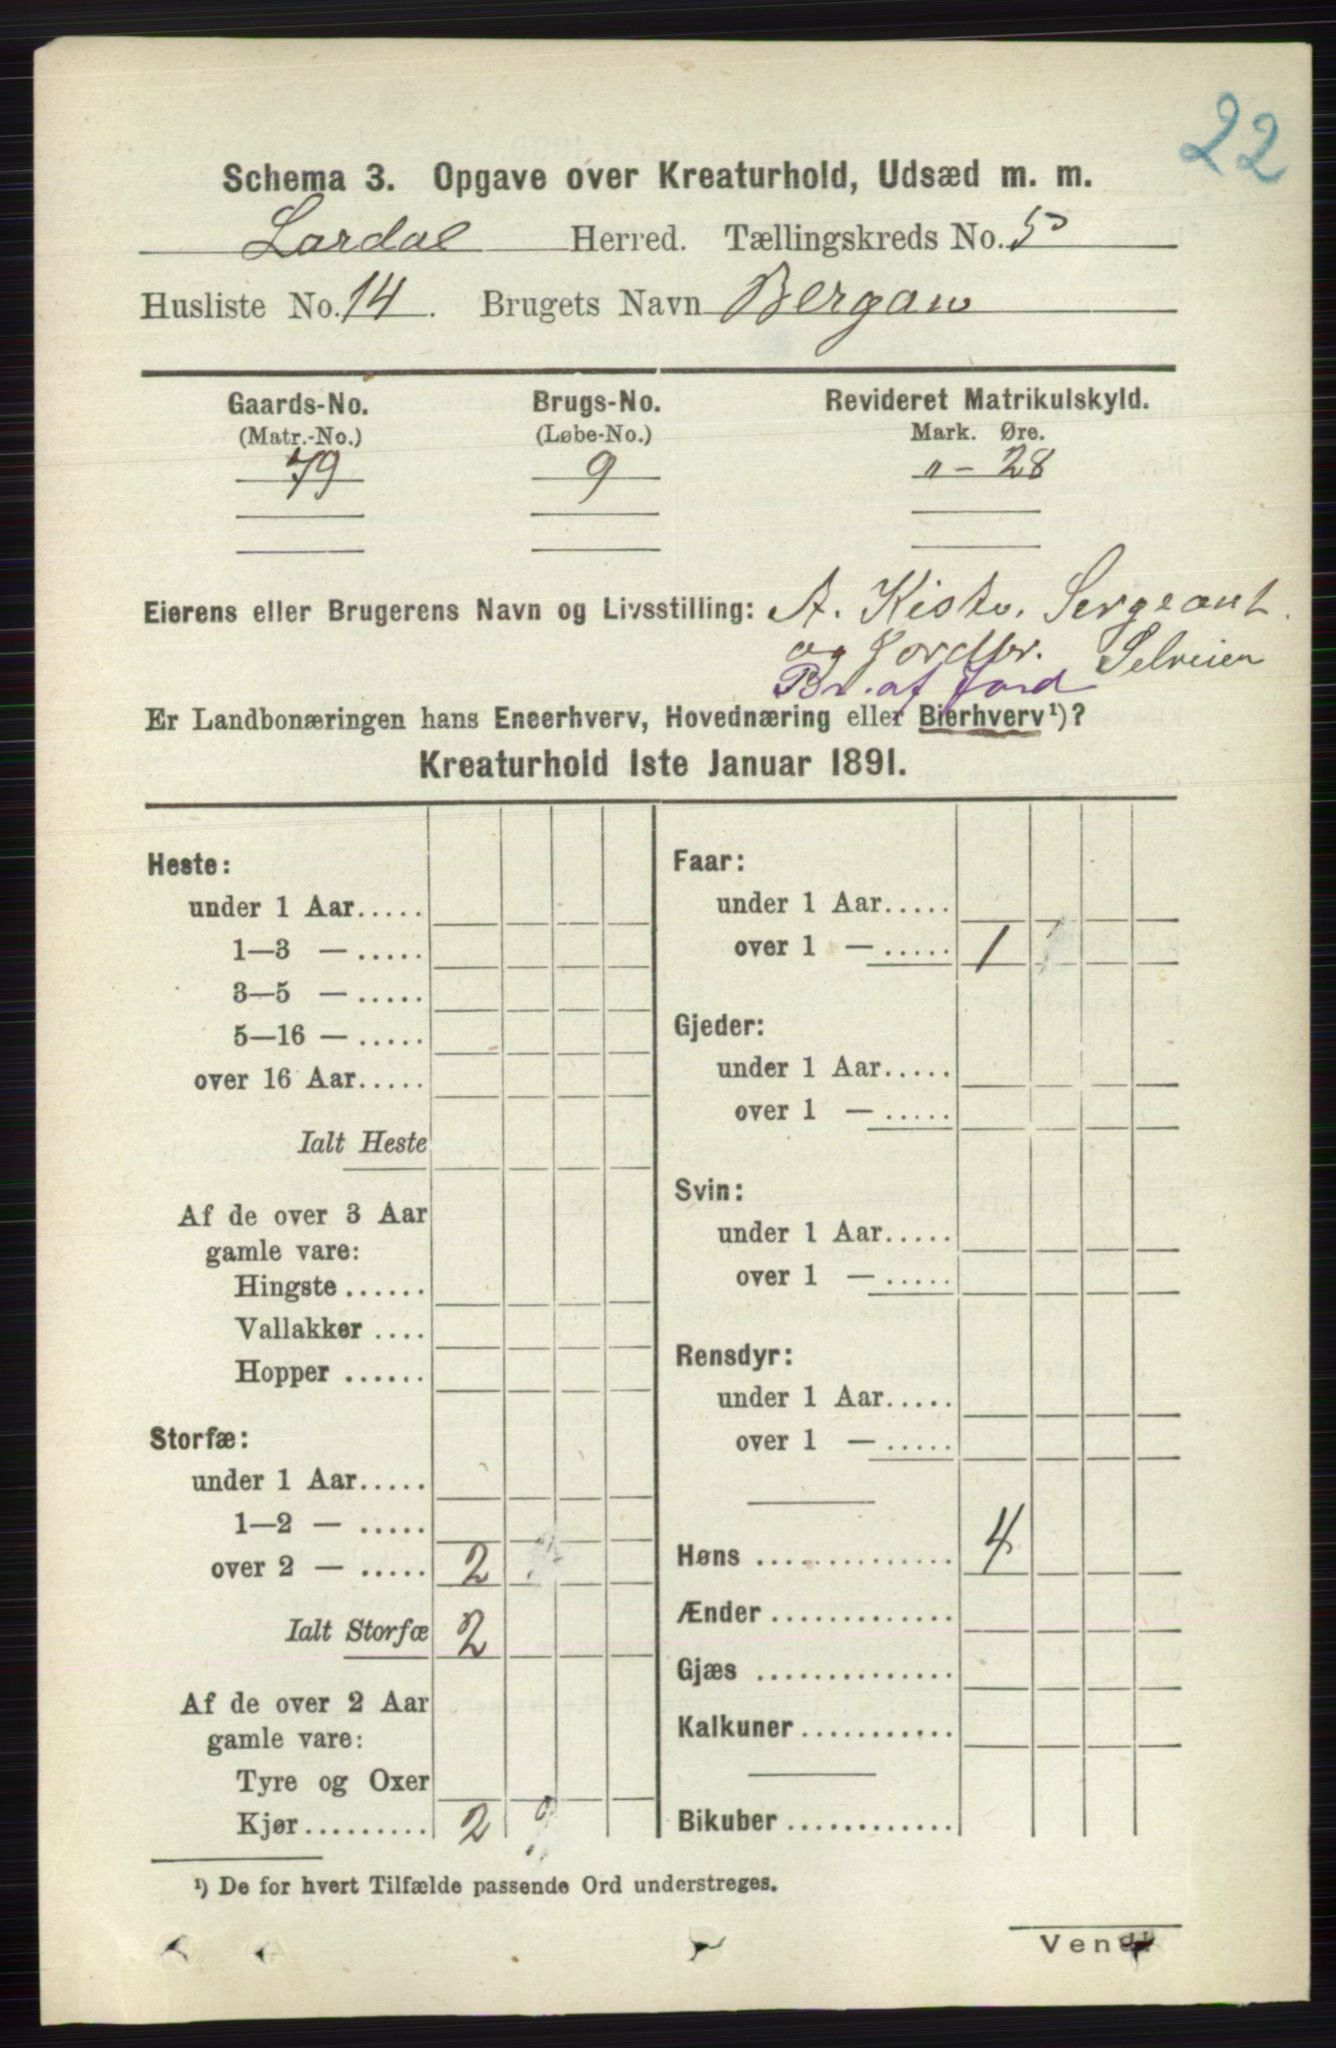 22
Schema 3. Opgave over Kreaturhold, Udsæd m. m.
Lardal Herred. Tællingskreds No. 5
Husliste No. 14. Brugets Navn Bergan
Gaards-No. Brugs-No. Revideret Matrikulskyld.
(Matr.-No.) (Løbe-No.) Mark. Øre.
79 9 " - 28
Eierens eller Brugerens Navn og Livsstilling: A. Sergeant
og Jordbr. Selveier
Br. af Jord
Er Landbonæringen hans Eneerhverv, Hovednæring eller Bierhverv¹)?
Kreaturhold 1ste Januar 1891.
Heste:
under 1 Aar.....
1—3 — .....
3—5 — .....
5—16 — .....
over 16 Aar.....
Ialt Heste
Af de over 3 Aar
gamle vare:
Hingste ......
Vallakker ....
Hopper ......
Storfæ:
under 1 Aar.....
1—2 — .....
over 2 — ..... 2
Ialt Storfæ 2
Af de over 2 Aar
gamle vare:
Tyre og Oxer
Kjør......... 2
Faar:
under 1 Aar.....
over 1 — ..... 1
Gjeder:
under 1 Aar.....
over 1 — .....
Svin:
under 1 Aar.....
over 1 — .....
Rensdyr:
under 1 Aar.....
over 1 — .....
Høns .............. 4
Ænder .............
Gjæs ..............
Kalkuner...........
Bikuber ............
¹) De for hvert Tilfælde passende Ord understreges.
Vend!